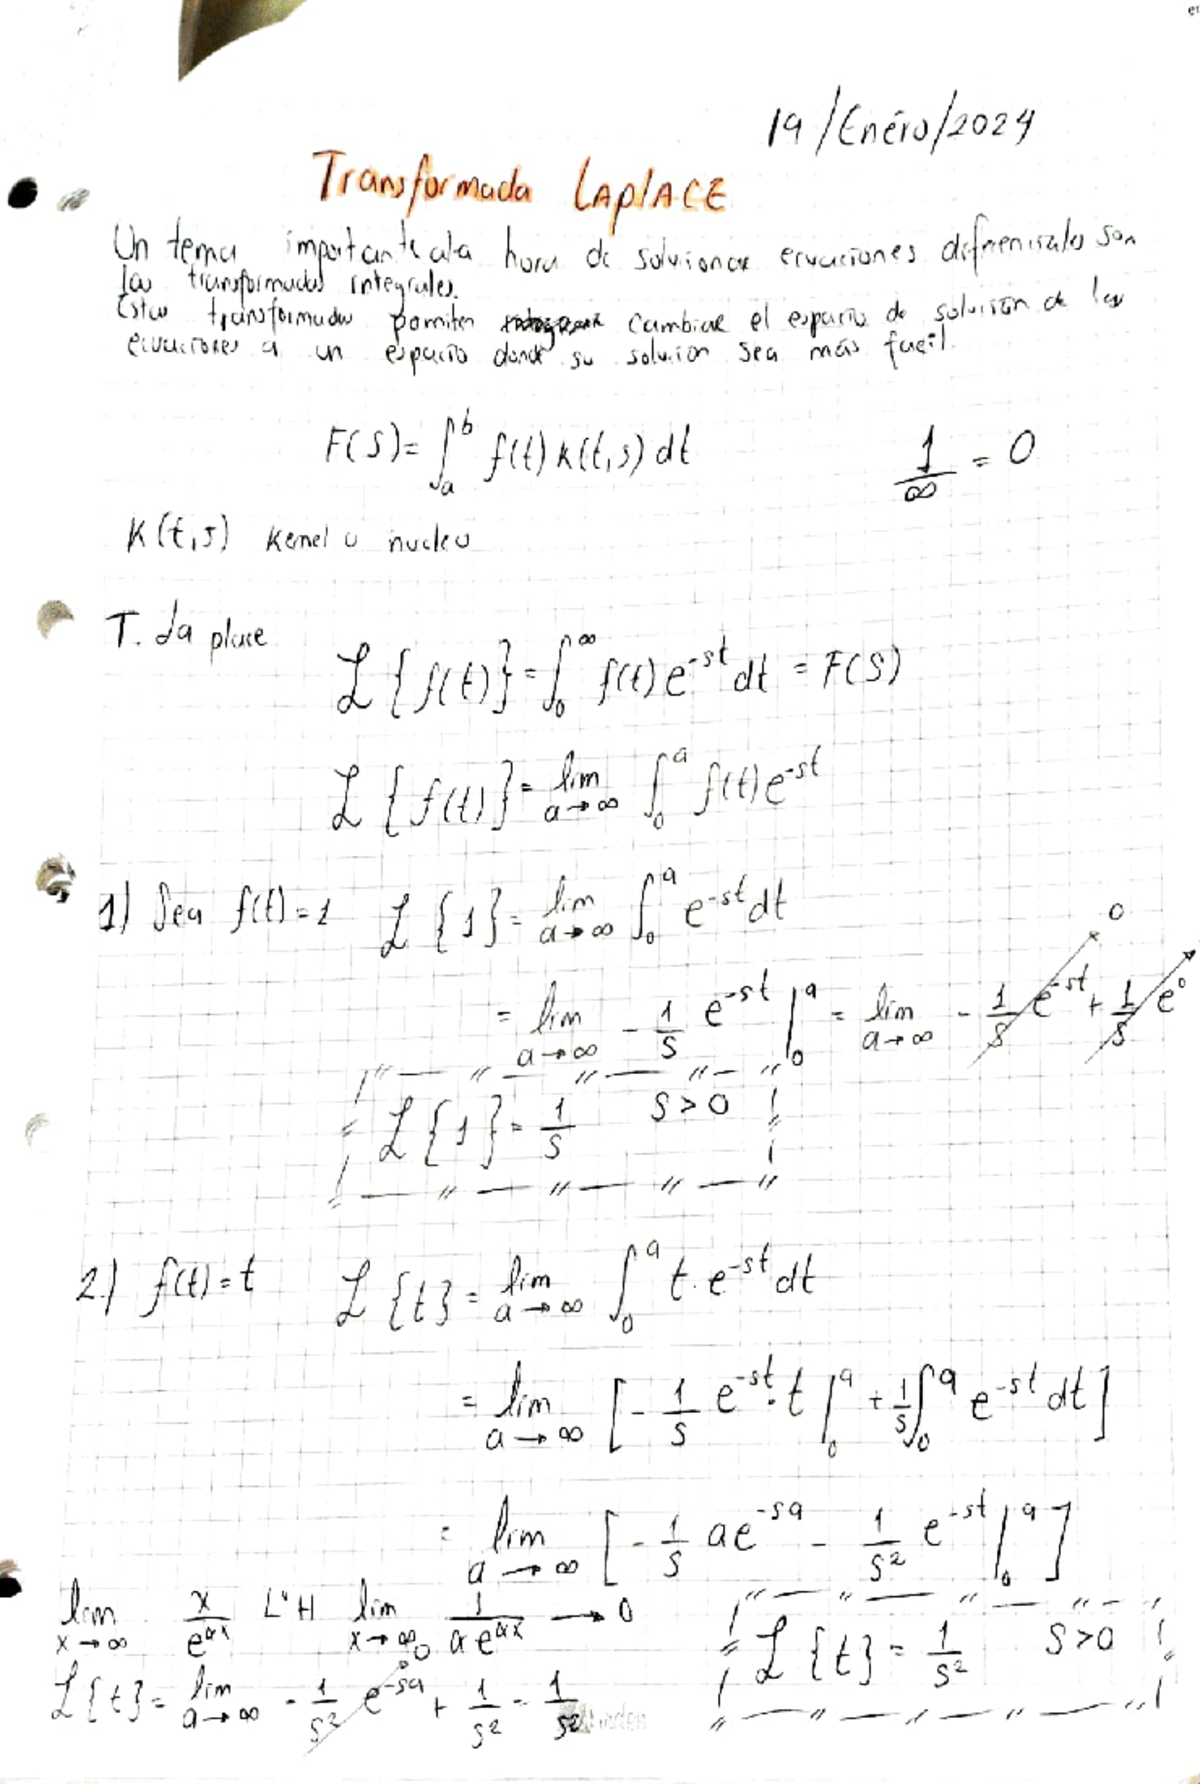 19/Enero/2024
Transformada LAPlACE
Un tema importante ala hora de solucionar ecuaciones diferenciales son
las transformadas integrales.
Estas transformadas permiten cambiar el espacio de solución de las
ecuaciones a un espacio donde su solucion sea más facil.
F(S)= ∫_a^b f(t) k(t,s) dt     1/∞ = 0
K(t,s) Kernel o nucleo
T. La place
ℒ{f(t)} = ∫_0^∞ f(t) e^{-st} dt = F(S)
ℒ{f(t)} = lim_{a→∞} ∫_0^a f(t) e^{-st}
1) Sea f(t)=1   ℒ{1} = lim_{a→∞} ∫_0^a e^{-st} dt
= lim_{a→∞} -1/s e^{-st} |_0^a = lim_{a→∞} -1/s e^{-st} + 1/s e^0   0
ℒ{1} = 1/s   S>0
2) f(t)=t   ℒ{t} = lim_{a→∞} ∫_0^a t·e^{-st} dt
= lim_{a→∞} [-1/s e^{-st}·t |_0^a + 1/s ∫_0^a e^{-st} dt]
= lim_{a→∞} [-1/s ae^{-sa} - 1/s² e^{-st} |_0^a]
lim_{x→∞} x/e^{αx} L'H lim_{x→∞} 1/αe^{αx} → 0
ℒ{t} = 1/s²   S>0
ℒ{t} = lim_{a→∞} -1/s² e^{-sa} + 1/s² = 1/s²   0